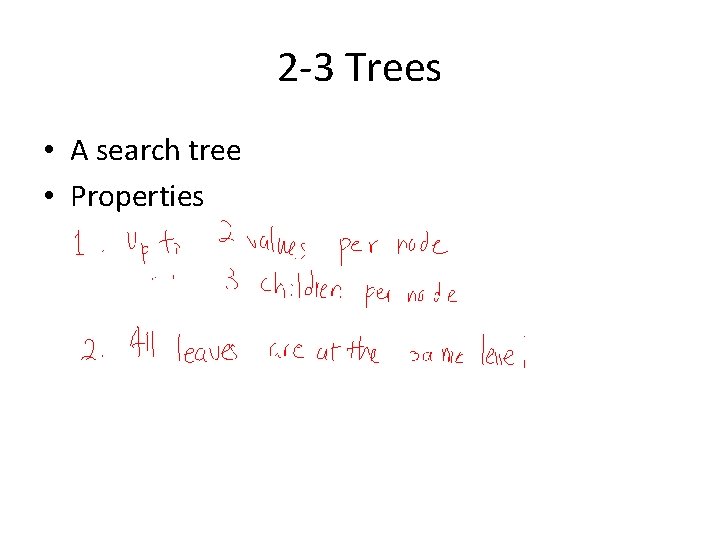 2-3 Trees
• A search tree
• Properties
1. Up to 2 values per node
.. .. 3 children per node
2. All leaves are at the same level